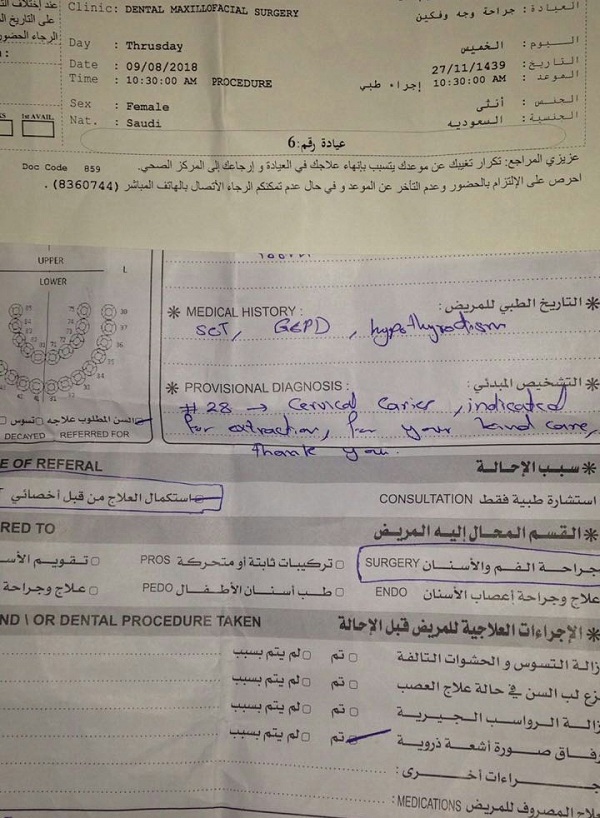 عند إختلاف الت
على التاريخ ال
الرجاء الحضور
Clinic: DENTAL MAXILLOFACIAL SURGERY العيادة: جراحة وجه وفكين
Day : Thrusday اليوم: الخميس
Date : 09/08/2018 التاريخ: 27/11/1439
Time : 10:30:00 AM PROCEDURE الموعد: 10:30:00 AM إجراء طبي
Sex : Female الجنس: أنثى
Nat. : Saudi الجنسية: السعوديه
1st AVAIL.
عيادة رقم:6
عزيزي المراجع: تكرار تغيبك عن موعدك يتسبب بإنهاء علاجك في العيادة و إرجاعك إلى المركز الصحي.
Doc Code 859
احرص على الإلتزام بالحضور وعدم التأخر عن الموعد و في حال عدم تمكنكم الرجاء الأتصال بالهاتف المباشر (8360744) .
UPPER
L
LOWER
* MEDICAL HISTORY : التاريخ الطبي للمريض: *
SCT, G6PD, hypothyrodism
* PROVISIONAL DIAGNOSIS : التشخيص المبدئي: *
#28 → Cervical Caries, indicated
for extraction, for your kind care,
thank you.
السن المطلوب علاجه تسوس
DECAYED REFERRED FOR
E OF REFERAL سبب الإحالة *
استكمال العلاج من قبل أخصائي CONSULTATION استشارة طبية فقط
RED TO القسم المحال إليه المريض *
جراحة الفم والأسنان SURGERY تركيبات ثابتة أو متحركة PROS تقويم الأس
علاج وجراحة أعصاب الأسنان ENDO طب أسنان الأطفال PEDO علاج وجراحة
ND \ OR DENTAL PROCEDURE TAKEN الإجراءات العلاجية للمريض قبل الإحالة *
زالة التسوس و الحشوات التالفة تم لم يتم بسبب
زع لب السن في حالة علاج العصب تم لم يتم بسبب
زالة الرواسب الجيرية تم لم يتم بسبب
رفاق صورة أشعة ذروية تم لم يتم بسبب
جراءات أخرى:
علاج المصروف للمريض MEDICATIONS: